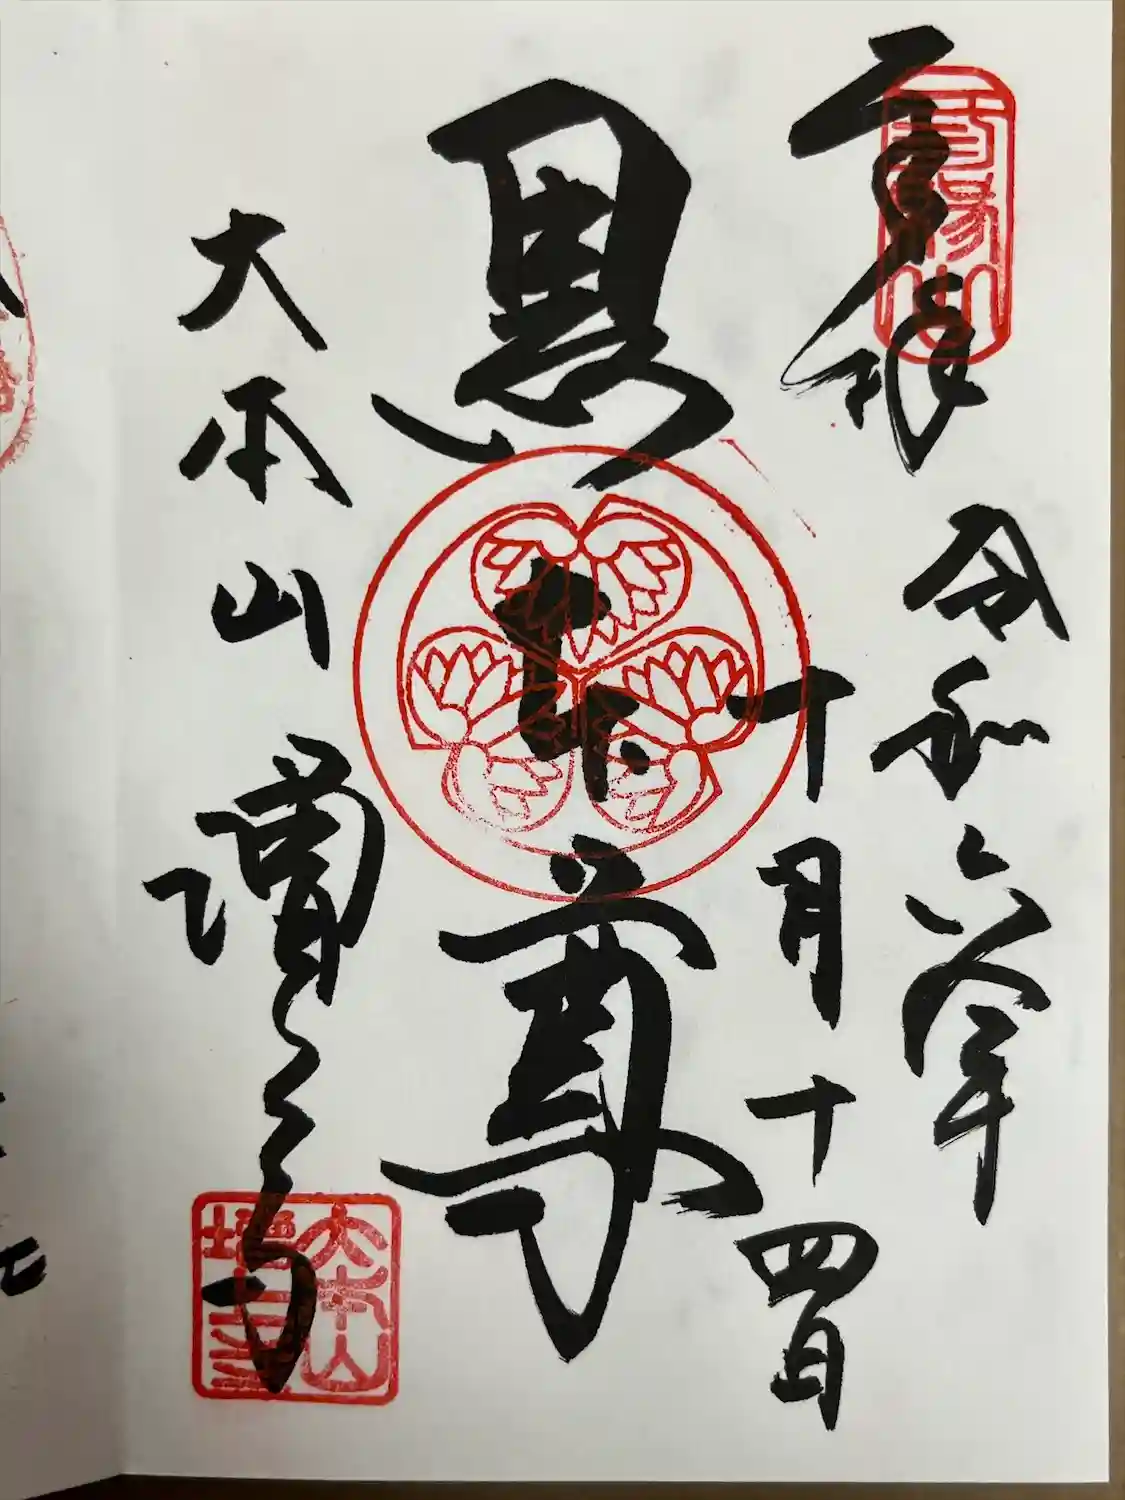 令和六年
十月十四日
黒本尊
大本山 増上寺
大本山
増上寺